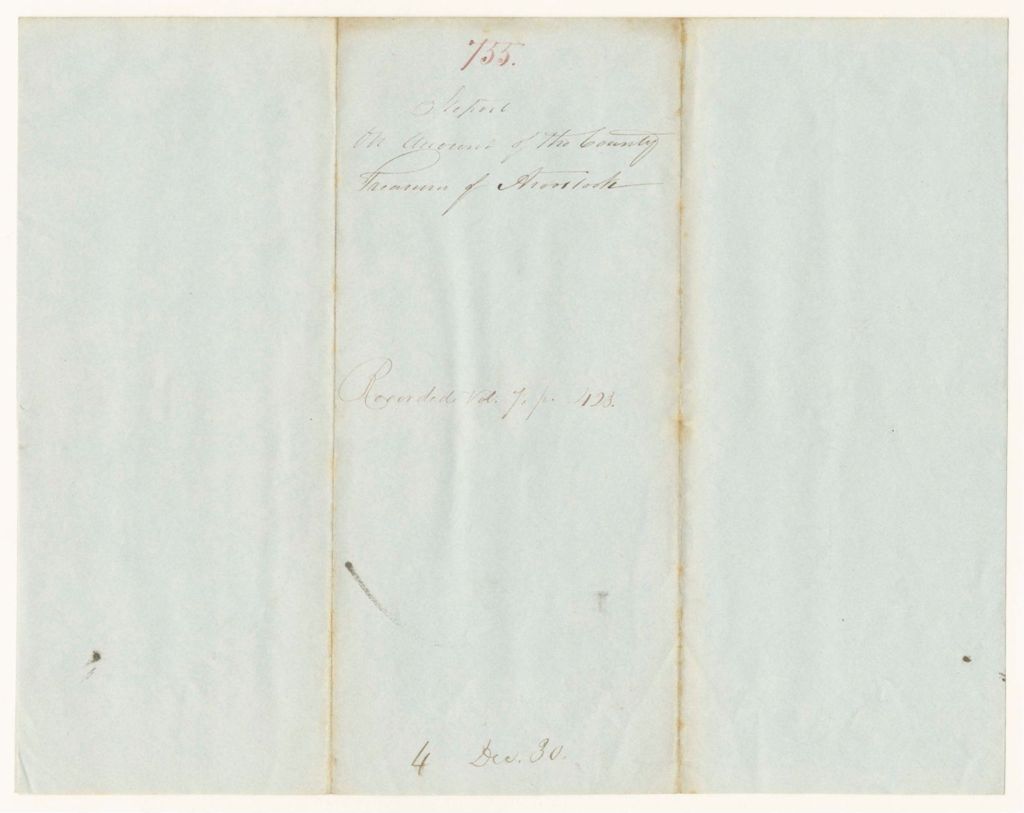 755.
Report
On Account of the County
Treasurer of Aroostook
Recorded Vol. 7, p. 423.
4 Dec. 30.